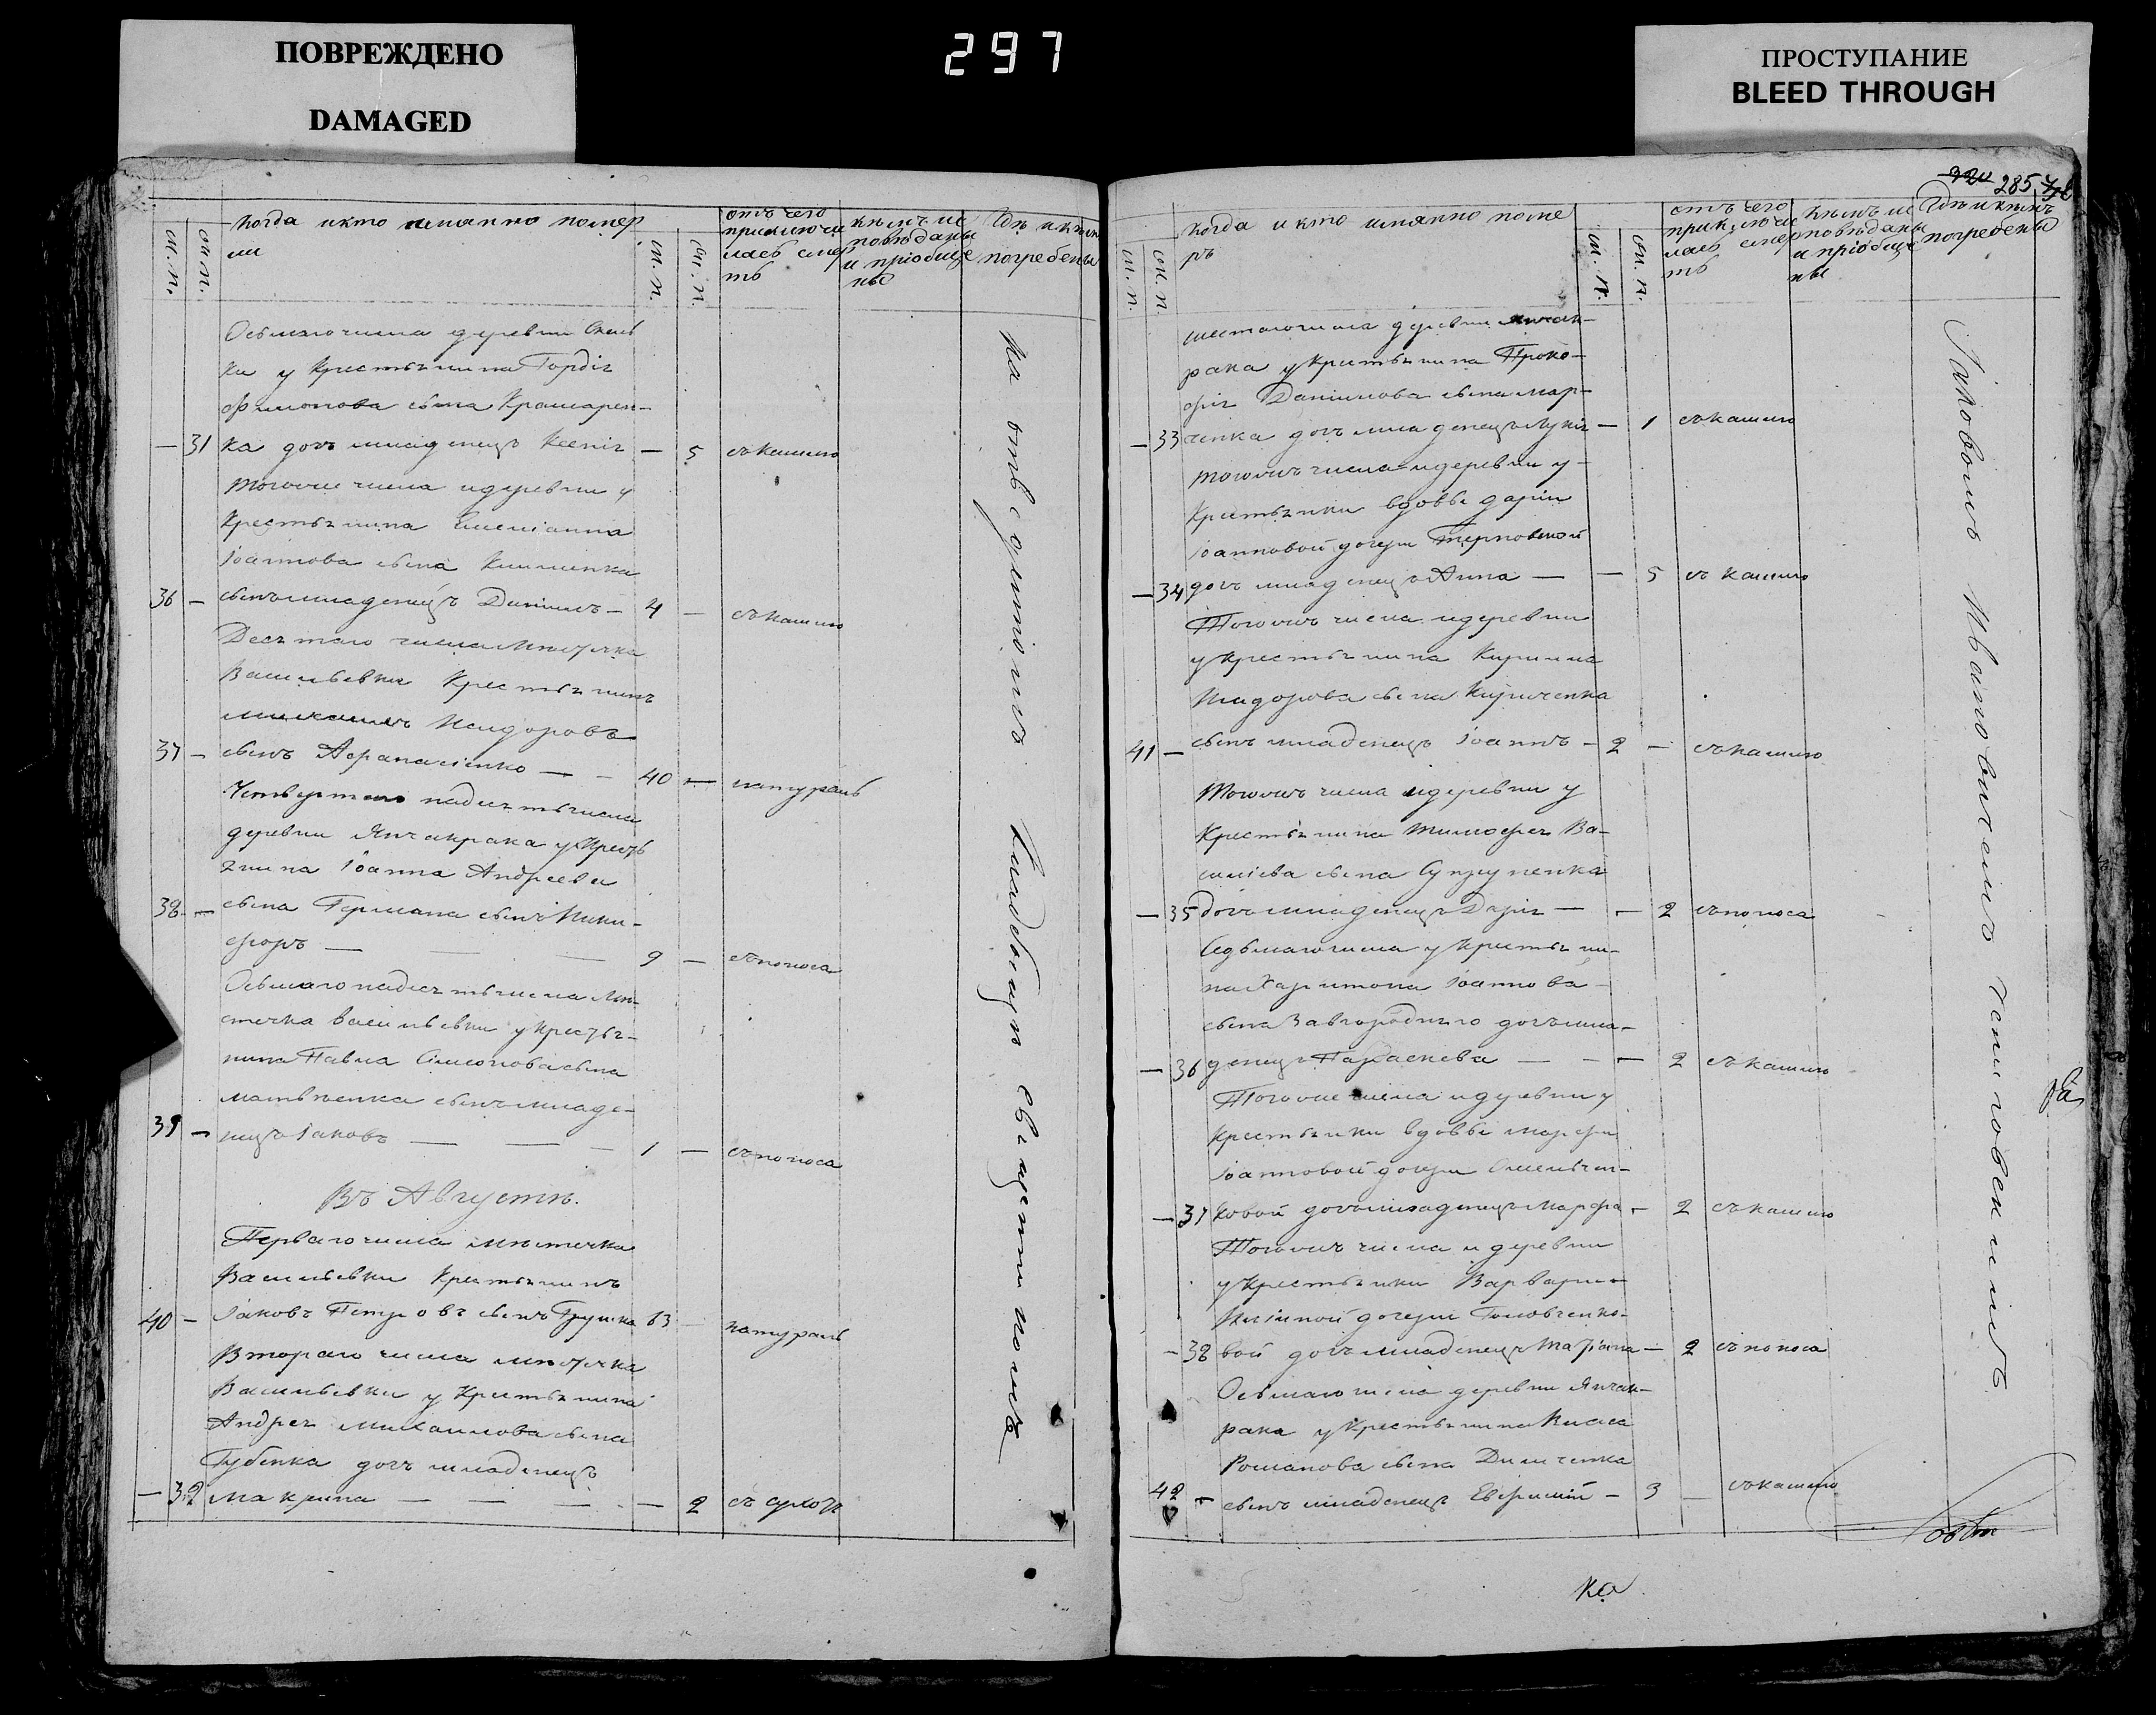 ПОВРЕЖДЕНО
DAMAGED
297
ПРОСТУПАНИЕ
BLEED THROUGH
285
м. п.
ж. п.
когда и кто имянно помер
ли
м. п.
ж. п.
отъ чего
приключи
лась смер
ть
кѣмъ ис
повѣданы
и пріобще
ны
Гдѣ и кѣмъ
погребены
Осьмаго числа деревни
ки у крестьянина Гордія
Филионова сына Крамарен-
— 31 ка дочь младенецъ Ксенія — 5 съ кашлю
того же числа и деревни у
крестьянина Емеліанна
Іоаннова сына Клименка
36 — сынъ младенецъ Даніилъ — 4 — съ кашлю
Десятаго числа мѣстечка
Васильевки крестьянинъ
Исидоровъ
37 — сынъ Афанасіенко — — 40 — натураль
Четвертаго надесять числа
деревни Янчакрака у крестья
янина Іоанна Андреева
38 — сына Германа сынъ Ники-
форъ — — — 9 — съ поноса
Осьмаго надесять числа мѣ-
стечка Васильевки у крестья-
нина Павла Симонова сына
Матвѣенка сынъ младе-
39 — нецъ Іаковъ — — — 1 — съ поноса
Въ Августѣ.
Перваго числа мѣстечка
Васильевки крестьянинъ
40 — Іаковъ Петровъ сынъ Грушка 63 — натураль
Втораго числа мѣстечка
Васильевки у крестьянина
Андрея Михаилова сына
Губенка дочь младенецъ
— 32 Макрина — — — — 2 съ сухот
На отведенномъ кладбищѣ священникомъ
м. п.
ж. п.
когда и кто имянно поме
ръ
м. п.
ж. п.
отъ чего
приключи
лась смер
ть
кѣмъ ис
повѣданы
и пріобще
ны
Гдѣ и кѣмъ
погребены
шестаго числа деревни Янчак-
рака у крестьянина Проко-
фія Даніилова сына Мар-
— 33 ченка дочь младенецъ Лукія — 1 съ кашлю
того же числа и деревни у
крестьянки вдовы Даріи
Іоанновой дочери Терновской
— 34 дочь младенецъ Анна — — 5 съ кашлю
Того же числа и деревни
у крестьянина Кирилла
Исидорова сына Кириченка
41 — сынъ младенецъ Іоаннъ — 2 — съ кашлю
Того же числа и деревни у
крестьянина Тимофея Ва-
силіева сына
— 35 дочь младенецъ Дарія — — 2 съ поноса
Седьмаго числа у крестьяни-
на Харитона Іоаннова
сына Завгороднего дочь мла-
— 36 денецъ Параскева — — — 2 съ кашлю
Того же числа и деревни у
крестьянки вдовы Марфы
Іоанновой дочери Омельчен-
— 37 ковой дочь младенецъ Марфа — 2 съ кашлю
Того же числа и деревни
у крестьянки Варвары
дочери Головченко-
— 38 вой дочь младенецъ — 2 съ поноса
Осьмаго числа деревни Янчак-
рака у крестьянина Власа
Романова сына Дымченка
42 — сынъ младенецъ Евфимій — 3 — съ кашлю
Іаковомъ Ивановичемъ